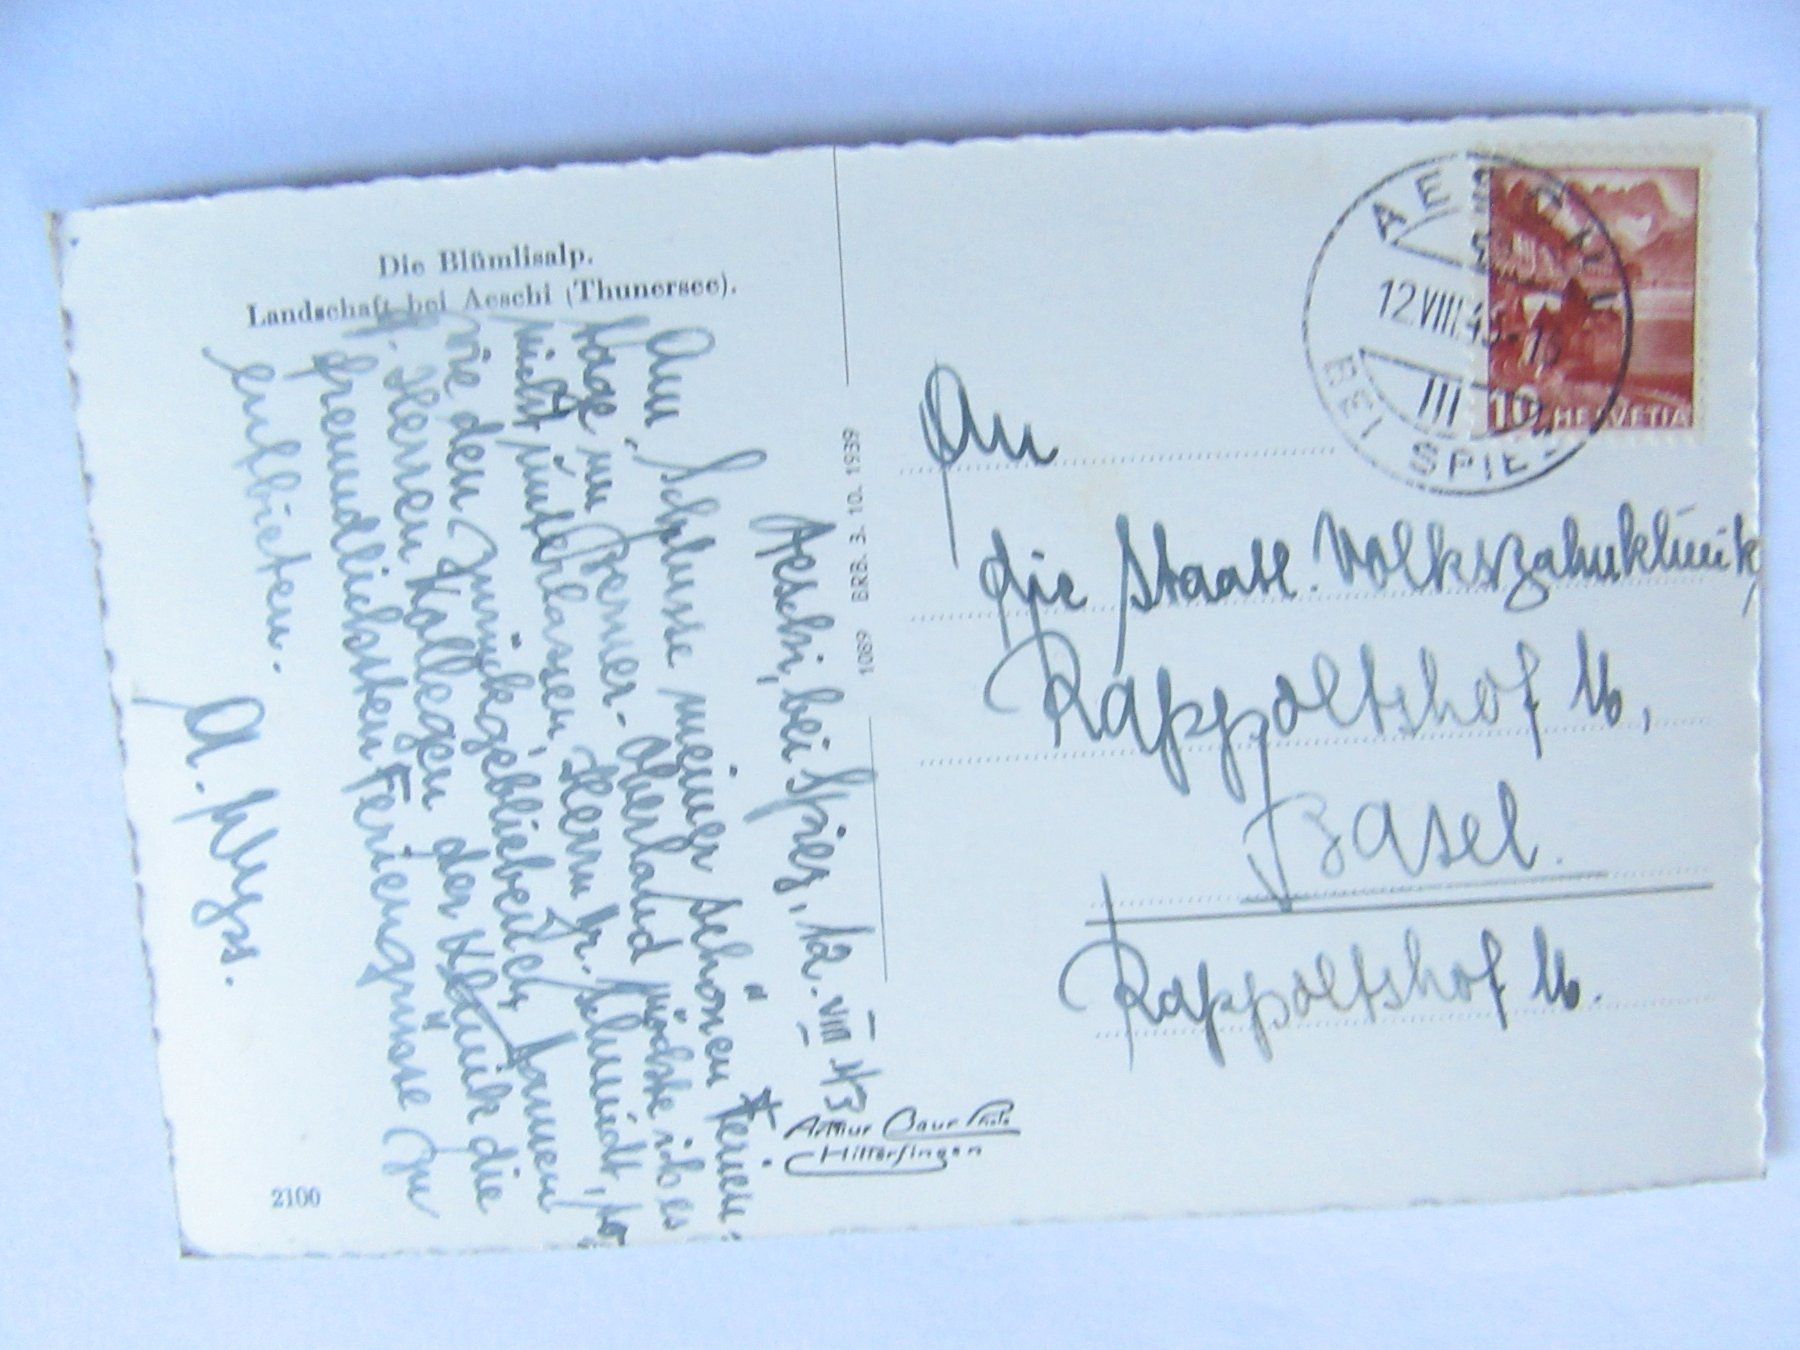 Die Blümlisalp.
Landschaft bei Aeschi (Thunersee).
Aeschi, bei Spiez, 12. VIII 43.
Am Schlusse meiner schönen Ferien-
tage im Berner-Oberland möchte ich es
nicht unterlassen, Herrn Dr. Schmidt, so
wie den zurückgebliebenen Damen
u. Herren Kollegen der Klinik die
freundlichsten Feriengrüsse zu
entbieten.
A. Wyss.
2100
1069 BRB. 3. 10. 1939
Arthur Baur Photo
Hilterfingen
AESCHI
12.VIII.43-
III
BEI SPIE
10 HELVETIA
An
die Staatl. Volkszahnklinik,
Rappoltshof 16,
Basel.
Rappoltshof 16.